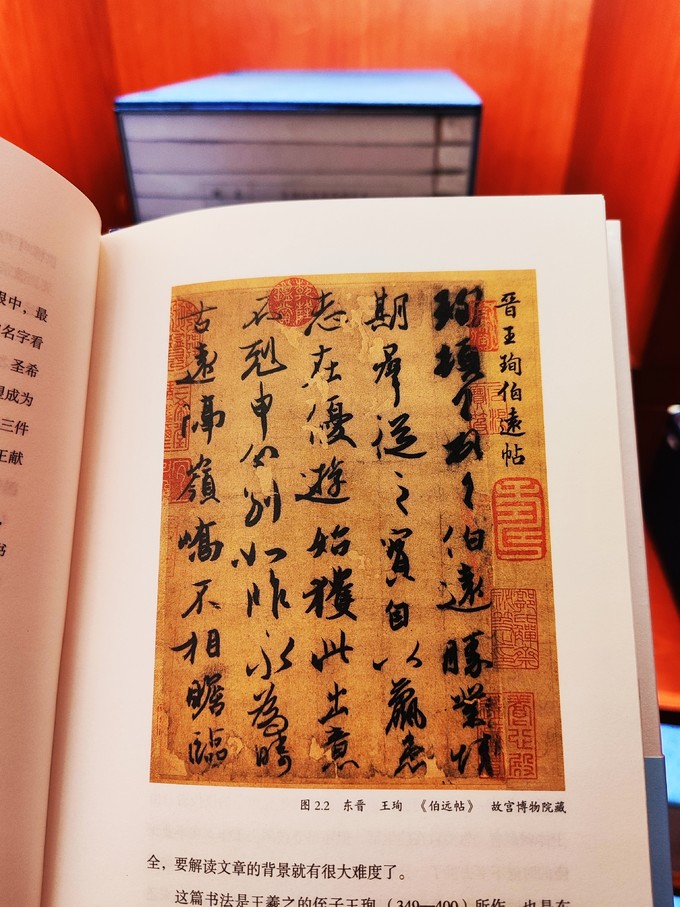 眼中，最
名字看
圣希
成为
三件
王献
书
晉王珣伯遠帖
珣頓首頓首伯遠勝業情
期群從之寶自以羸患
志在優遊始獲此出意
不剋申分別如昨永為疇
古遠隔嶺嶠不相瞻臨
图 2.2 东晋 王珣 《伯远帖》 故宫博物院藏
全，要解读文章的背景就有很大难度了。
这篇书法是王羲之的侄子王珣（349—400）所作，也是东